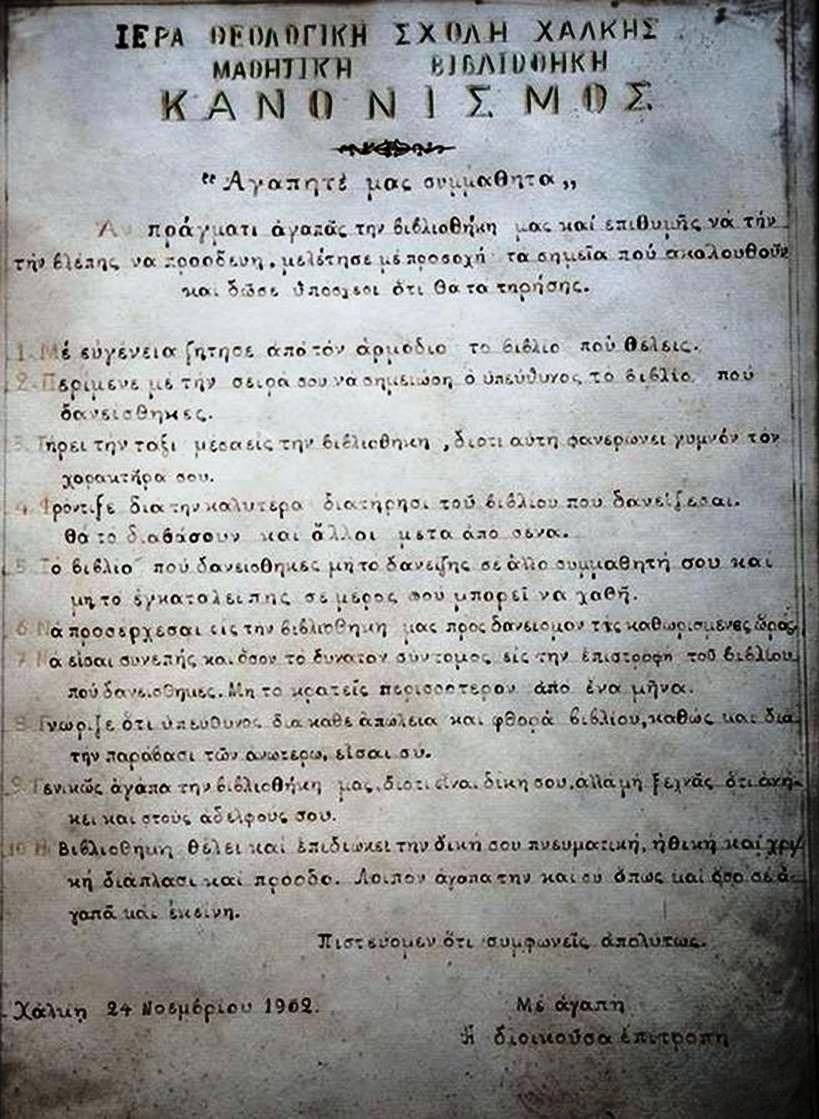 ΙΕΡΑ ΘΕΟΛΟΓΙΚΗ ΣΧΟΛΗ ΧΑΛΚΗΣ
ΜΑΘΗΤΙΚΗ ΒΙΒΛΙΟΘΗΚΗ
ΚΑΝΟΝΙΣΜΟΣ
"Αγαπητέ μας συμμαθητα„
Αν πράγματι ἀγαπᾶς την βιβλιοθήκη μας καί επιθυμῆς νά τήν
τήν βλέπης να προοδευη, μελέτησε μέ προσοχή τα σημεῖα πού ακολουθοῦν
και δῶσε ὑποσχεσι ότι θα τα τηρήσης.
1. Μέ εὐγένεια ζήτησε από τόν ἁρμόδιο το βιβλιο πού θέλεις.
2. Περίμενε μέ τήν σειρά σου νά σημειώση ο ὑπεύθυνος το βιβλίο πού
δανείσθηκες.
3. Τήρει τήν ταξι μέσα εἰς την βιβλιοθηκη, διοτι αὐτη φανερωνει γυμνόν τόν
χαρακτήρα σου.
4. Φρόντιζε δια την καλυτερα διατήρησι τοῦ βιβλίου που δανείζεσαι.
Θα το διαβάσουν και ἄλλοι μετα ἀπο σενα.
5. Το βιβλιο πού δανεισθηκες μη το δανείζης σε ἀλλο συμμαθητή σου και
μη το ἐγκαταλειπης σε μερος που μπορεῖ να χαθῆ.
6. Νά προσερχεσαι εις την βιβλιοθηκη μας προς δανεισμον τάς καθωρισμενες ὥρας.
7. Νά εἰσαι συνεπής και ὅσον το δυνατον σύντομος εἰς την ἐπιστροφη τοῦ βιβλίου
πού δανεισθηκες. Μη το κρατεῖς περισσοτερον ἀπο ἑνα μῆνα.
8. Γνωριζε ότι ὑπευθυνος δια καθε ἀπωλεια και φθορά βιβλίου, καθώς και δια
τήν παράβασι τῶν ανωτερω, εἶσαι συ.
9. Γενικῶς ἀγάπα την βιβλιοθήκη μας, διοτι εἶναι δικη σου, αλλα μή ξεχνᾶς ὁτι ἀνή-
κει και στους ἀδελφους σου.
10. Η Βιβλιοθηκη θέλει καί ἐπιδιώκει την δική σου πνευματική, ἠθική και χρι/
κή διάπλασι και προοδο. Λοιπον ἀγαπα την και συ ὅπως και ὅσο σε ἀ-
γαπᾶ και ἐκεινη.
Πιστεύομεν ὅτι συμφωνεῖς ἀπολύτως.
Χάλκη 24 Νοεμβρίου 1962.
Μέ ἀγαπη
Ἡ διοικοῦσα ἐπιτροπη